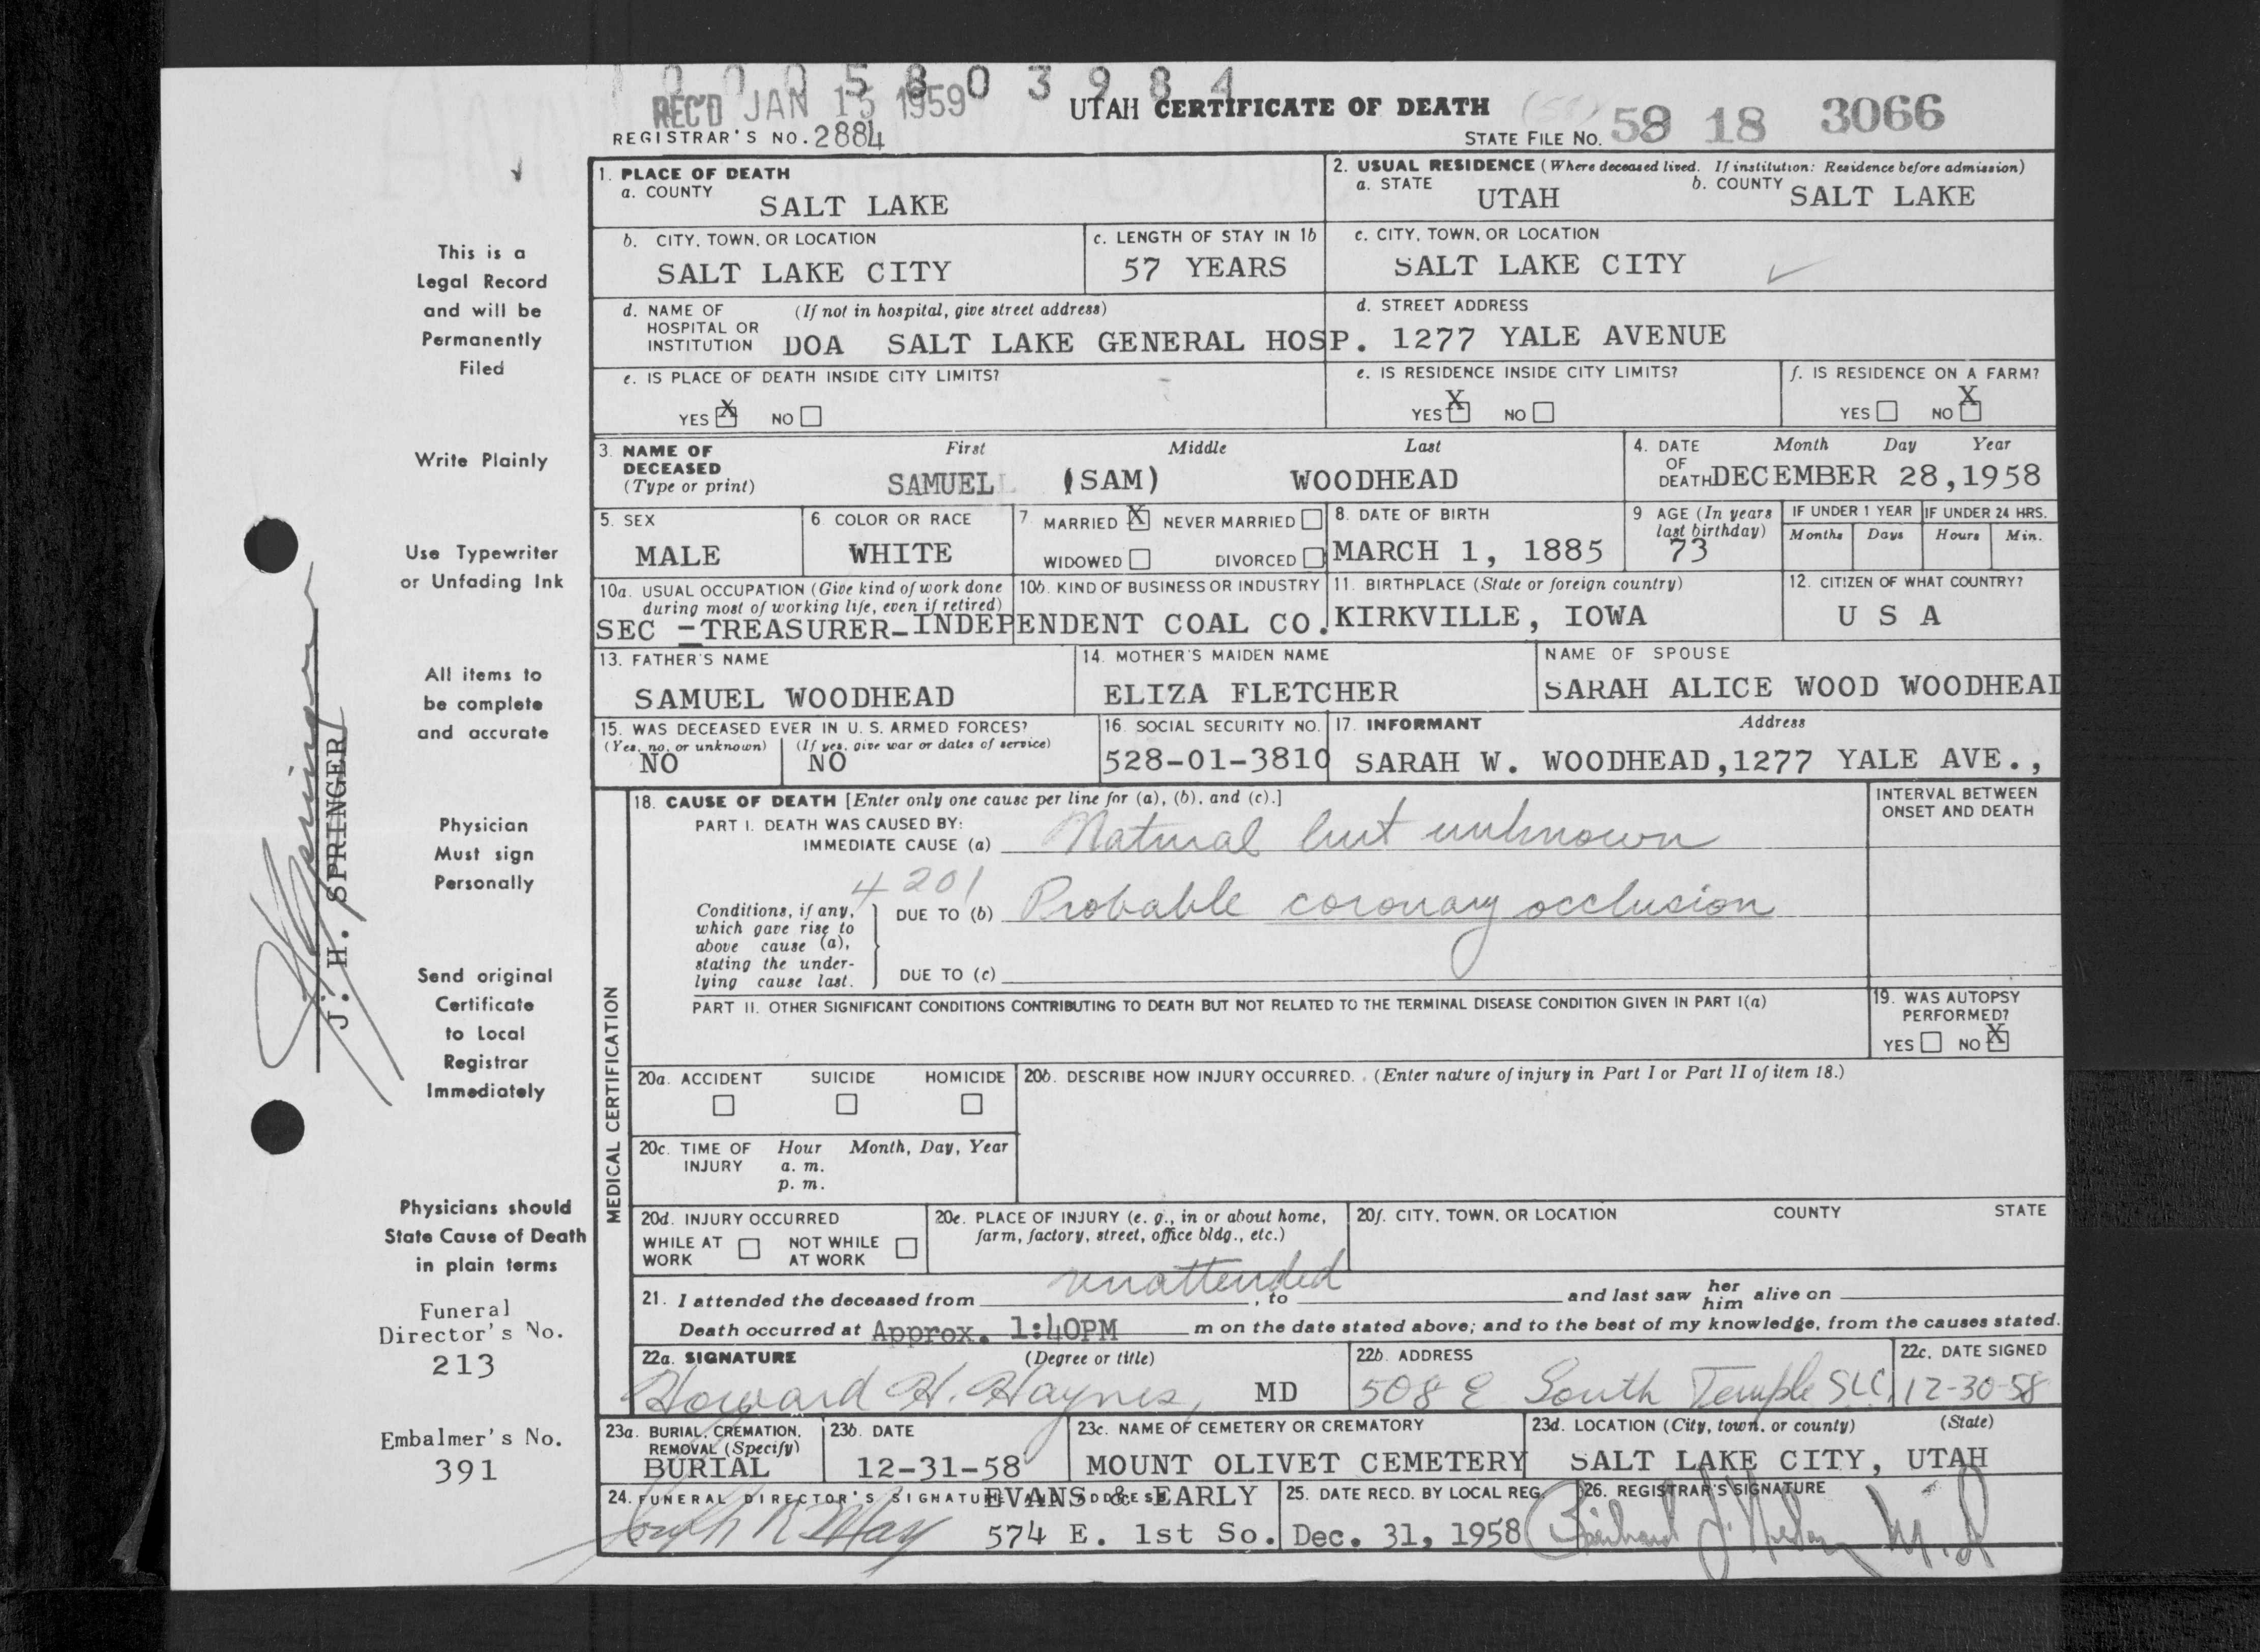 1 0 0 0 5 8 0 3 9 8 4
REC'D JAN 15 1959
UTAH CERTIFICATE OF DEATH
REGISTRAR'S NO. 2884
STATE FILE NO. 58 18 3066
1. PLACE OF DEATH
a. COUNTY
SALT LAKE
2. USUAL RESIDENCE (Where deceased lived. If institution: Residence before admission)
a. STATE
UTAH
b. COUNTY
SALT LAKE
b. CITY, TOWN, OR LOCATION
SALT LAKE CITY
c. LENGTH OF STAY IN 1b
57 YEARS
c. CITY, TOWN, OR LOCATION
SALT LAKE CITY
d. NAME OF (If not in hospital, give street address)
HOSPITAL OR
INSTITUTION DOA SALT LAKE GENERAL HOSP.
d. STREET ADDRESS
1277 YALE AVENUE
e. IS PLACE OF DEATH INSIDE CITY LIMITS?
YES X NO
e. IS RESIDENCE INSIDE CITY LIMITS?
YES X NO
f. IS RESIDENCE ON A FARM?
YES NO X
3. NAME OF DECEASED (Type or print)
First Middle Last
SAMUEL (SAM) WOODHEAD
4. DATE OF DEATH
Month Day Year
DECEMBER 28,1958
5. SEX
MALE
6 COLOR OR RACE
WHITE
7. MARRIED X NEVER MARRIED
WIDOWED DIVORCED
8. DATE OF BIRTH
MARCH 1, 1885
9 AGE (In years last birthday)
73
IF UNDER 1 YEAR
Months Days
IF UNDER 24 HRS.
Hours Min.
10a. USUAL OCCUPATION (Give kind of work done during most of working life, even if retired)
10b. KIND OF BUSINESS OR INDUSTRY
SEC -TREASURER-INDEPENDENT COAL CO.
11. BIRTHPLACE (State or foreign country)
KIRKVILLE, IOWA
12. CITIZEN OF WHAT COUNTRY?
U S A
13. FATHER'S NAME
SAMUEL WOODHEAD
14. MOTHER'S MAIDEN NAME
ELIZA FLETCHER
NAME OF SPOUSE
SARAH ALICE WOOD WOODHEAD
15. WAS DECEASED EVER IN U. S. ARMED FORCES?
(Yes, no, or unknown) (If yes, give war or dates of service)
NO NO
16. SOCIAL SECURITY NO.
528-01-3810
17. INFORMANT Address
SARAH W. WOODHEAD,1277 YALE AVE.,
MEDICAL CERTIFICATION
18. CAUSE OF DEATH [Enter only one cause per line for (a), (b), and (c).]
INTERVAL BETWEEN ONSET AND DEATH
PART I. DEATH WAS CAUSED BY:
IMMEDIATE CAUSE (a) Natural but unknown
4201
Conditions, if any, which gave rise to above cause (a), stating the underlying cause last.
DUE TO (b) Probable coronary occlusion
DUE TO (c)
PART II. OTHER SIGNIFICANT CONDITIONS CONTRIBUTING TO DEATH BUT NOT RELATED TO THE TERMINAL DISEASE CONDITION GIVEN IN PART I(a)
19. WAS AUTOPSY PERFORMED?
YES NO X
20a. ACCIDENT SUICIDE HOMICIDE
20b. DESCRIBE HOW INJURY OCCURRED. (Enter nature of injury in Part I or Part II of item 18.)
20c. TIME OF INJURY
Hour Month, Day, Year
a. m.
p. m.
20d. INJURY OCCURRED
WHILE AT WORK NOT WHILE AT WORK
20e. PLACE OF INJURY (e. g., in or about home, farm, factory, street, office bldg., etc.)
20f. CITY, TOWN, OR LOCATION COUNTY STATE
unattended
21. I attended the deceased from , to and last saw her him alive on
Death occurred at Approx. 1:40PM m on the date stated above; and to the best of my knowledge, from the causes stated.
22a. SIGNATURE (Degree or title)
Howard H. Haynes, MD
22b. ADDRESS
508 E South Temple SLC
22c. DATE SIGNED
12-30-58
23a. BURIAL, CREMATION, REMOVAL (Specify)
BURIAL
23b. DATE
12-31-58
23c. NAME OF CEMETERY OR CREMATORY
MOUNT OLIVET CEMETERY
23d. LOCATION (City, town, or county) (State)
SALT LAKE CITY, UTAH
24. FUNERAL DIRECTOR'S SIGNATURE AND ADDRESS
EVANS & EARLY
574 E. 1st So.
25. DATE RECD. BY LOCAL REG.
Dec. 31, 1958
26. REGISTRAR'S SIGNATURE
M.D
This is a
Legal Record
and will be
Permanently
Filed
Write Plainly
Use Typewriter
or Unfading Ink
All items to
be complete
and accurate
Physician
Must sign
Personally
Send original
Certificate
to Local
Registrar
Immediately
Physicians should
State Cause of Death
in plain terms
Funeral
Director's No.
213
Embalmer's No.
391
J. H. SPRINGER